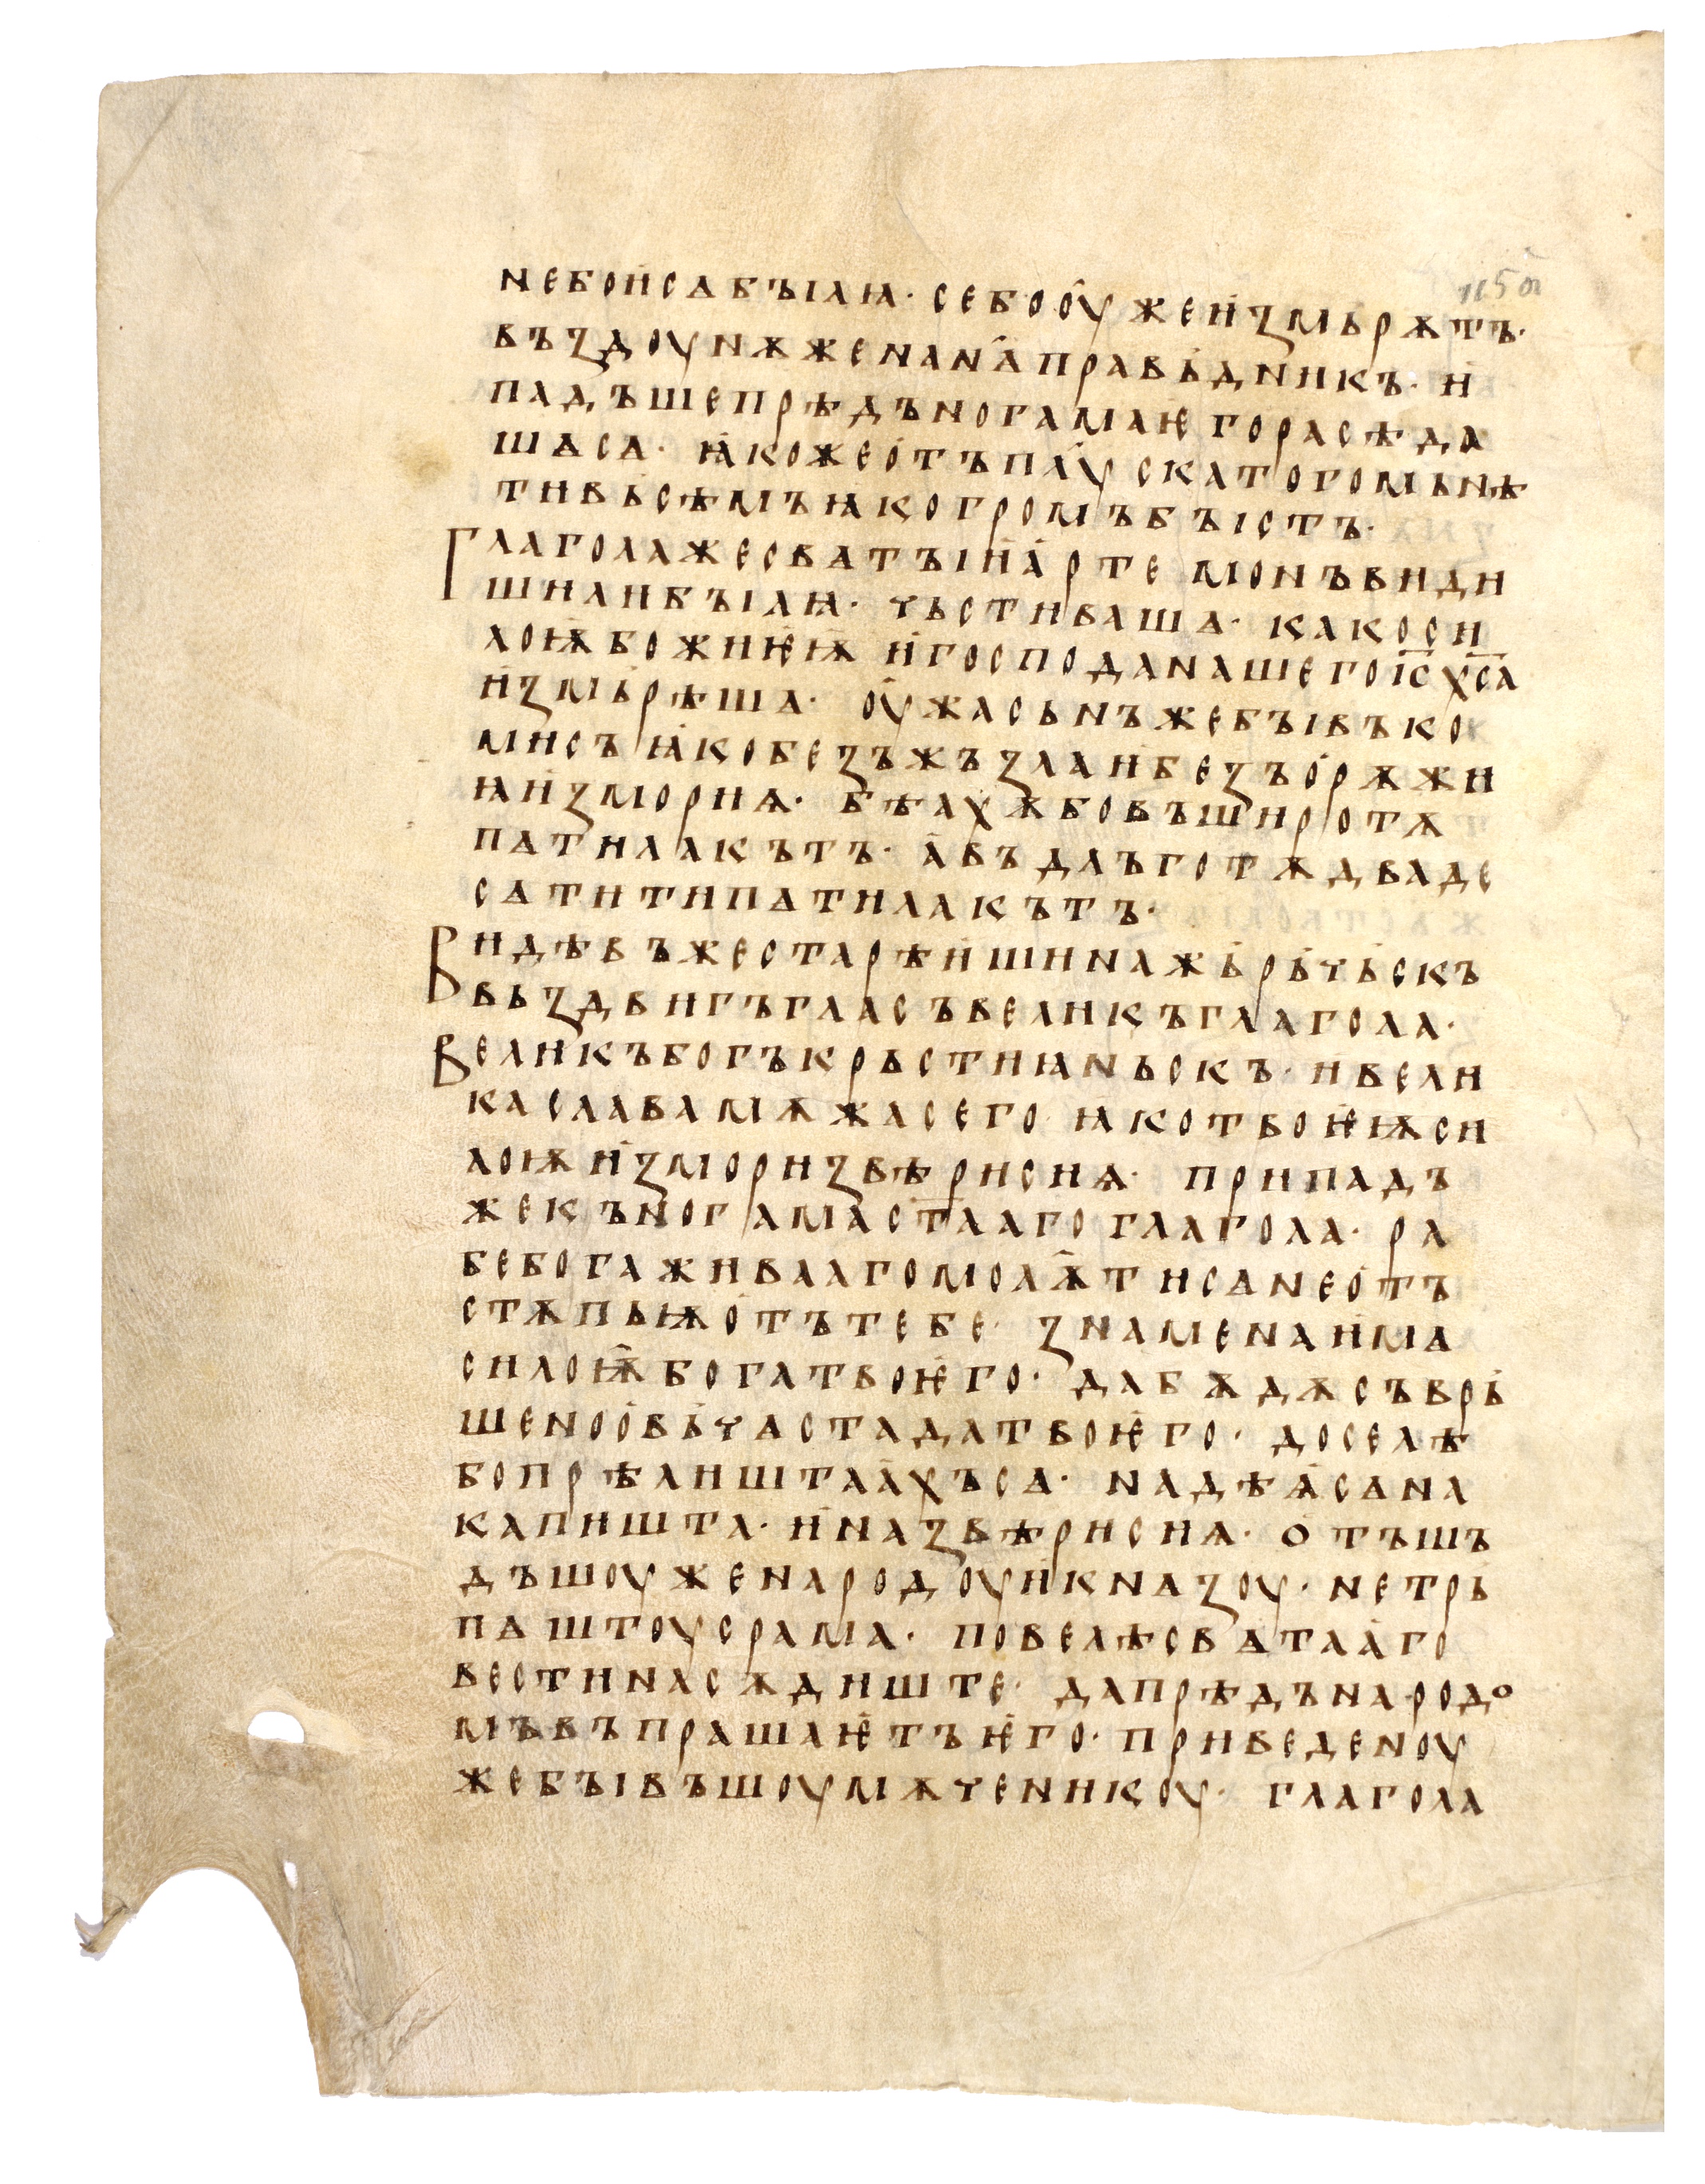 не бои сѧ бъілꙗ· се бо оу҅же и҅змьрѫтъ·
въздоунѫ же на нѧ҅ правьдникъ· и҅
падъше прѣдъ ногама ѥго расѣдо
шѧ сѧ· ꙗ҅ко же о҅тъ плоу҅ска того мьнѣ
ти вьсѣмъ ꙗко громъ бъістъ·
Глагола же свѧтъіи҅ а҅ртемонъ види
ши ли бъілꙗ· чьсти вашѧ· како си
лоѭ҅ божиѥ҅ѭ и҅ господа нашего і҅с х҅са
и҅змьрѣшѧ· оу҅жасьнъ же бъівъ ко
мисъ ꙗ҅ко безъ жъзла и҅ безъ о҅рѫжи
ꙗ и҅змори ѩ· бѣахѫ бо въ широтѫ
пѧти лакътъ· а҅ въ длъготѫ дъва де
сѧти ти пѧти лакътъ·
Видѣвъ же старѣи҅шина жьрьчьскъ
въздвигъ гласъ великъ глагола·
Великъ богъ крьстиꙗньскъ· и вели
ка слава мѫжа сего ꙗко твоѥ҅ѭ си
лоѭ и҅змори звѣри сиѩ· припадъ
же къ ногама ст҃ааго глагола· ра
бе бога живааго молѭ҅ ти сѧ не о҅тъ
стѫпьѭ о҅тъ тебе· знаменаи҅ мѧ
силоѭ҅ бога твоѥ҅го· да бѫдѫ съврь
шено о҅вьчѧ стада твоѥ҅го· доселѣ
бо прѣлиштаа҅хъ сѧ· надѣѩ҅ сѧ на
капишта· и҅ на звѣри сиѩ· о҅тъшъ
дъшоу же народоу и҅ кнѧзоу· не трь
пѧштоу срама· повелѣ свѧтаа҅го
вести на сѫдиште· да прѣдъ народо
мъ въпрашаѥ҅тъ ѥ҅го· приведеноу
же бъівъшоу мѫченикоу· глагола